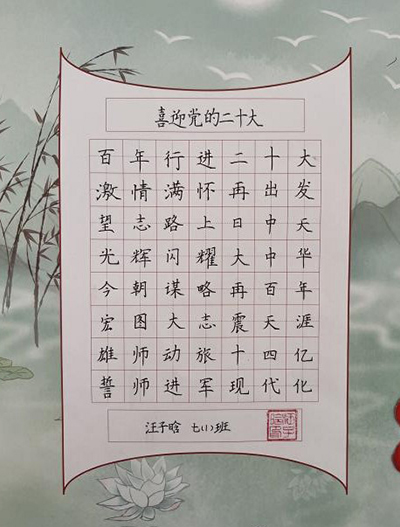 喜迎党的二十大
百年行进二十大
激情满怀再出发
望志路上日中天
光辉闪耀大中华
今朝谋略再百年
宏图大志震天涯
雄师动旅十四亿
誓师进军现代化
汪子晗 七(1)班